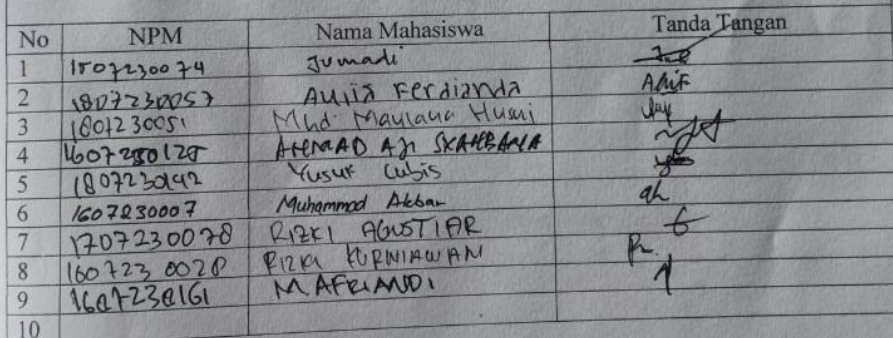 No NPM Nama Mahasiswa Tanda Tangan
1 1507230074 Jumadi
2 1807230057 Aulia Ferdianda Aulif
3 1607230051 Mhd. Maylana Husni
4 1607230128 AHMAD AJI
5 1807230142 Yusuf Cubis
6 1607230007 Muhammad Akbar
7 1707230078 RIZKI AGUSTIAR
8 1607230028 RIZKI KURNIAWAN
9 1607230161 M AFRIANDI
10